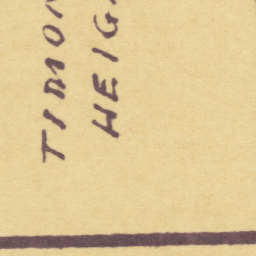 TIMON
HEIG